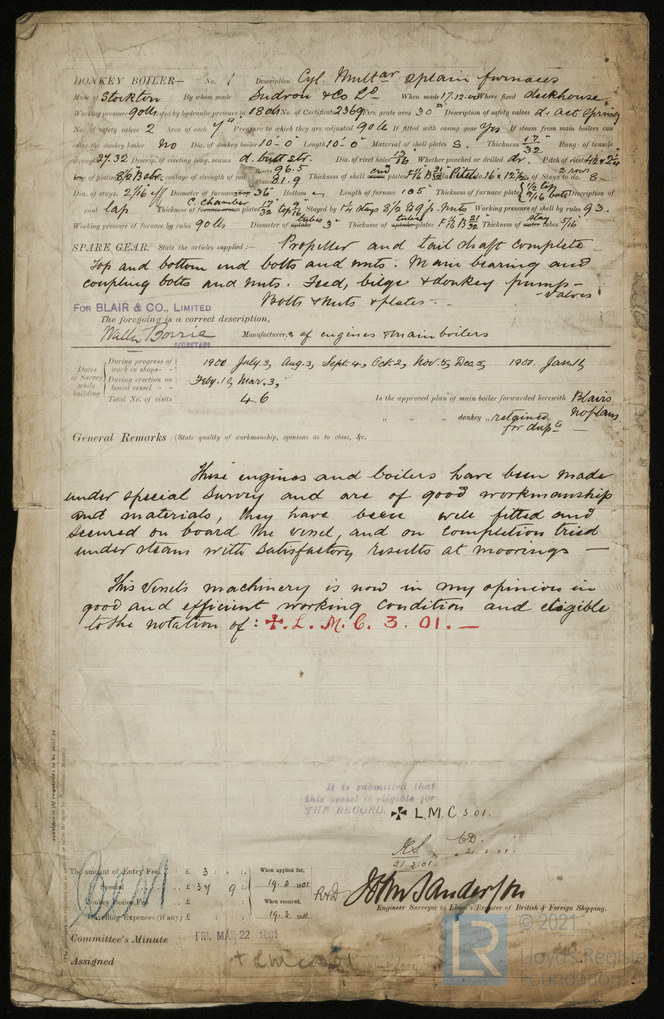 DONKEY BOILER— No. 1 Description Cyl. Multar 2 plain furnaces
Made at Stockton By whom made Gudron & Co Ld When made 17.12.00 Where fixed deckhouse
Working pressure 90lbs tested by hydraulic pressure to 180lbs No. of Certificate 2369 Fire grate area 30 Description of safety valves d. act Spring
No. of safety valves 2 Area of each 7 Pressure to which they are adjusted 90 lb If fitted with easing gear yes If steam from main boilers can
enter the donkey boiler no Dia. of donkey boiler 10'-0" Length 10'-0" Material of shell plates S. Thickness 17/32 Range of tensile
strength 27.32 Descrip. of riveting long. seams d. butt str. Dia. of rivet holes 13/16 Whether punched or drilled dr. Pitch of rivets
Lap of plating Per centage of strength of joint Rivets 96.5 Plates 81.9 Thickness of shell end plates No. of Stays to do. 8
Dia. of stays. Diameter of furnace Top 36" Bottom Length of furnace 105" Thickness of furnace plates 1/2 top 9/16 bot. Description of
joint lap Thickness of C. chamber plates Stayed by Working pressure of shell by rules 93.
Working pressure of furnace by rules 90lb Diameter of tubes 3" Thickness of plates Thickness of stay tubes 5/16"
SPARE GEAR. State the articles supplied:— Propeller and tail shaft complete
Top and bottom end bolts and nuts. Main bearing and
coupling bolts and nuts. Feed, bilge & donkey pump
valves
Bolts & nuts & plates
FOR BLAIR & CO., LIMITED
The foregoing is a correct description,
Walter Borrie Manufacturer. of engines & main boilers
SECRETARY
Dates of Survey while building
During progress of work in shops - - 1900 July 3, Aug. 3, Sept. 4, Oct. 2, Nov. 5, Dec. 5, 1901. Jan. 11,
During erection on board vessel - - Feby. 18, Mar. 3,
Total No. of visits 46 Is the approved plan of main boiler forwarded herewith Blairs no plans
" " " donkey " " retained for dupte —
General Remarks (State quality of workmanship, opinions as to class, &c.
These engines and boilers have been made
under special survey and are of good workmanship
and materials, they have been well fitted and
secured on board the vessel, and on completion tried
under steam with satisfactory results at moorings —
This Vessel's machinery is now in my opinion in
good and efficient working condition and eligible
to the notation of: ✠. L. M. C. 3. 01. —
It is submitted that
this vessel is eligible for
THE RECORD. ✠ L.M.C 3 01.
21.3.01
The amount of Entry Fee. . £ 3 : When applied for,
Special . . £ 37 9 : 19.3.1901
Donkey Boiler Fee . . £ : When received,
Travelling Expenses (if any) £ : 19.3.1901
John Sanderson
Engineer Surveyor to Lloyd's Register of British & Foreign Shipping.
Committee's Minute FRI. MAR 22 1901
Assigned + LMC 3.01
© 2021
LR Lloyd's Register
Foundation